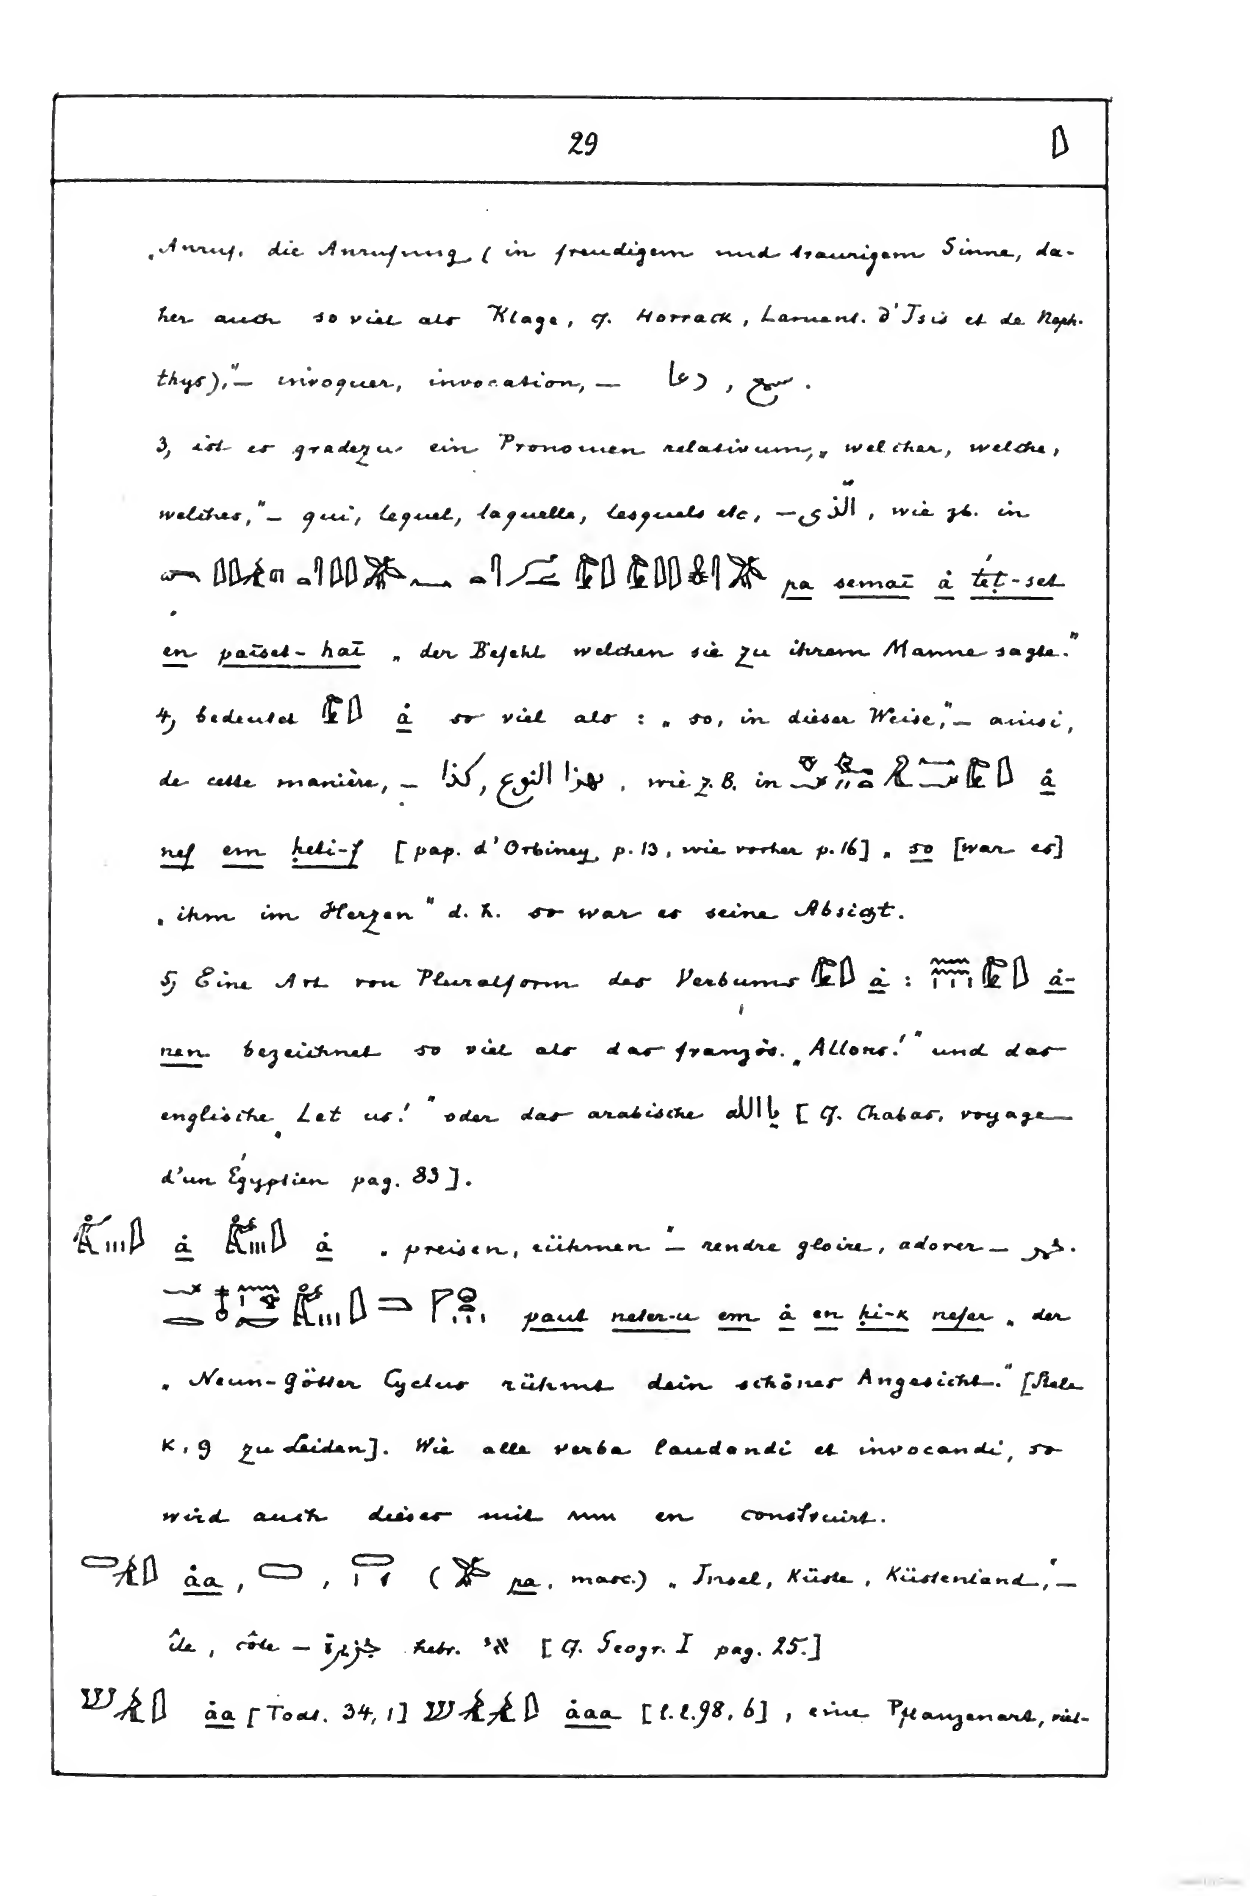 29
„Anruf, die Anrufung (in freudigem und traurigem Sinne, da-
her auch so viel als Klage, cf. Horrack, Lament. d'Isis et de Neph-
thys)," — invoquer, invocation, — دعا , سبح .
3, ist es gradezu ein Pronomen relativum, „welcher, welche,
welches," — qui, lequel, laquelle, lesquels etc, — الّذى , wie zb. in
pa semaī å teṭ-set
en païset-haī „der Befehl welchen sie zu ihrem Manne sagte."
4, bedeutet å so viel als : „so, in dieser Weise," — ainsi,
de cette manière, — كذا , بهذا النوع , wie z.B. in å
nef em ḥeti-f [pap. d'Orbiney, p. 13, wie vorher p. 16] „so [war es]
„ihm im Herzen" d. h. so war es seine Absicht.
5, Eine Art von Pluralform des Verbums å : å-
nen bezeichnet so viel als das französ. „Allons!" und das
englische „Let us!" oder das arabische يا الله [cf. Chabas, voyage
d'un Égyptien pag. 83].
å å „preisen, rühmen" — rendre gloire, adorer —
paut neter-u em å en ḥi-k nefer „der
„Neun-Götter Cyclus rühmt dein schönes Angesicht." [Stele
K, 9 zu Leiden]. Wie alle verba laudandi et invocandi, so
wird auch dieses mit en construirt.
åa , , (pa, masc.) „Insel, Küste, Küstenland," —
île, côte — جزيرة hebr. אי [cf. Geogr. I pag. 25.]
åa [Todt. 34,1] åaa [l. l. 98, 6], eine Pflanzenart, viel-